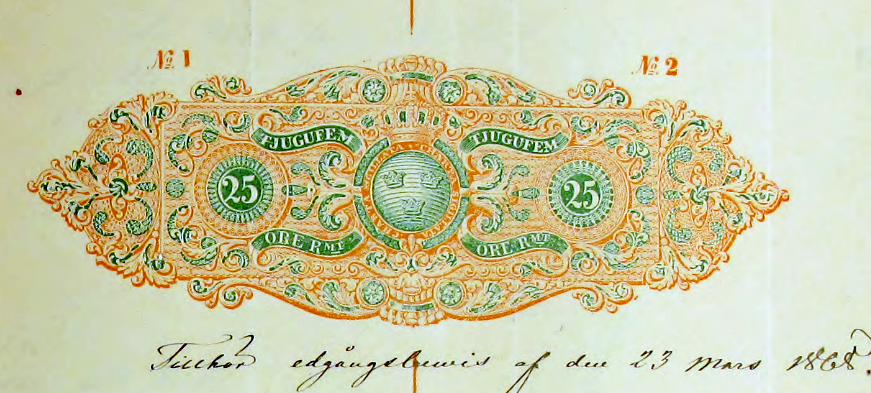 No 1 No 2
TJUGUFEM TJUGUFEM
25 25
ÖRE RMT ÖRE RMT
Tillhör edgångsbevis af den 23 Mars 1868.